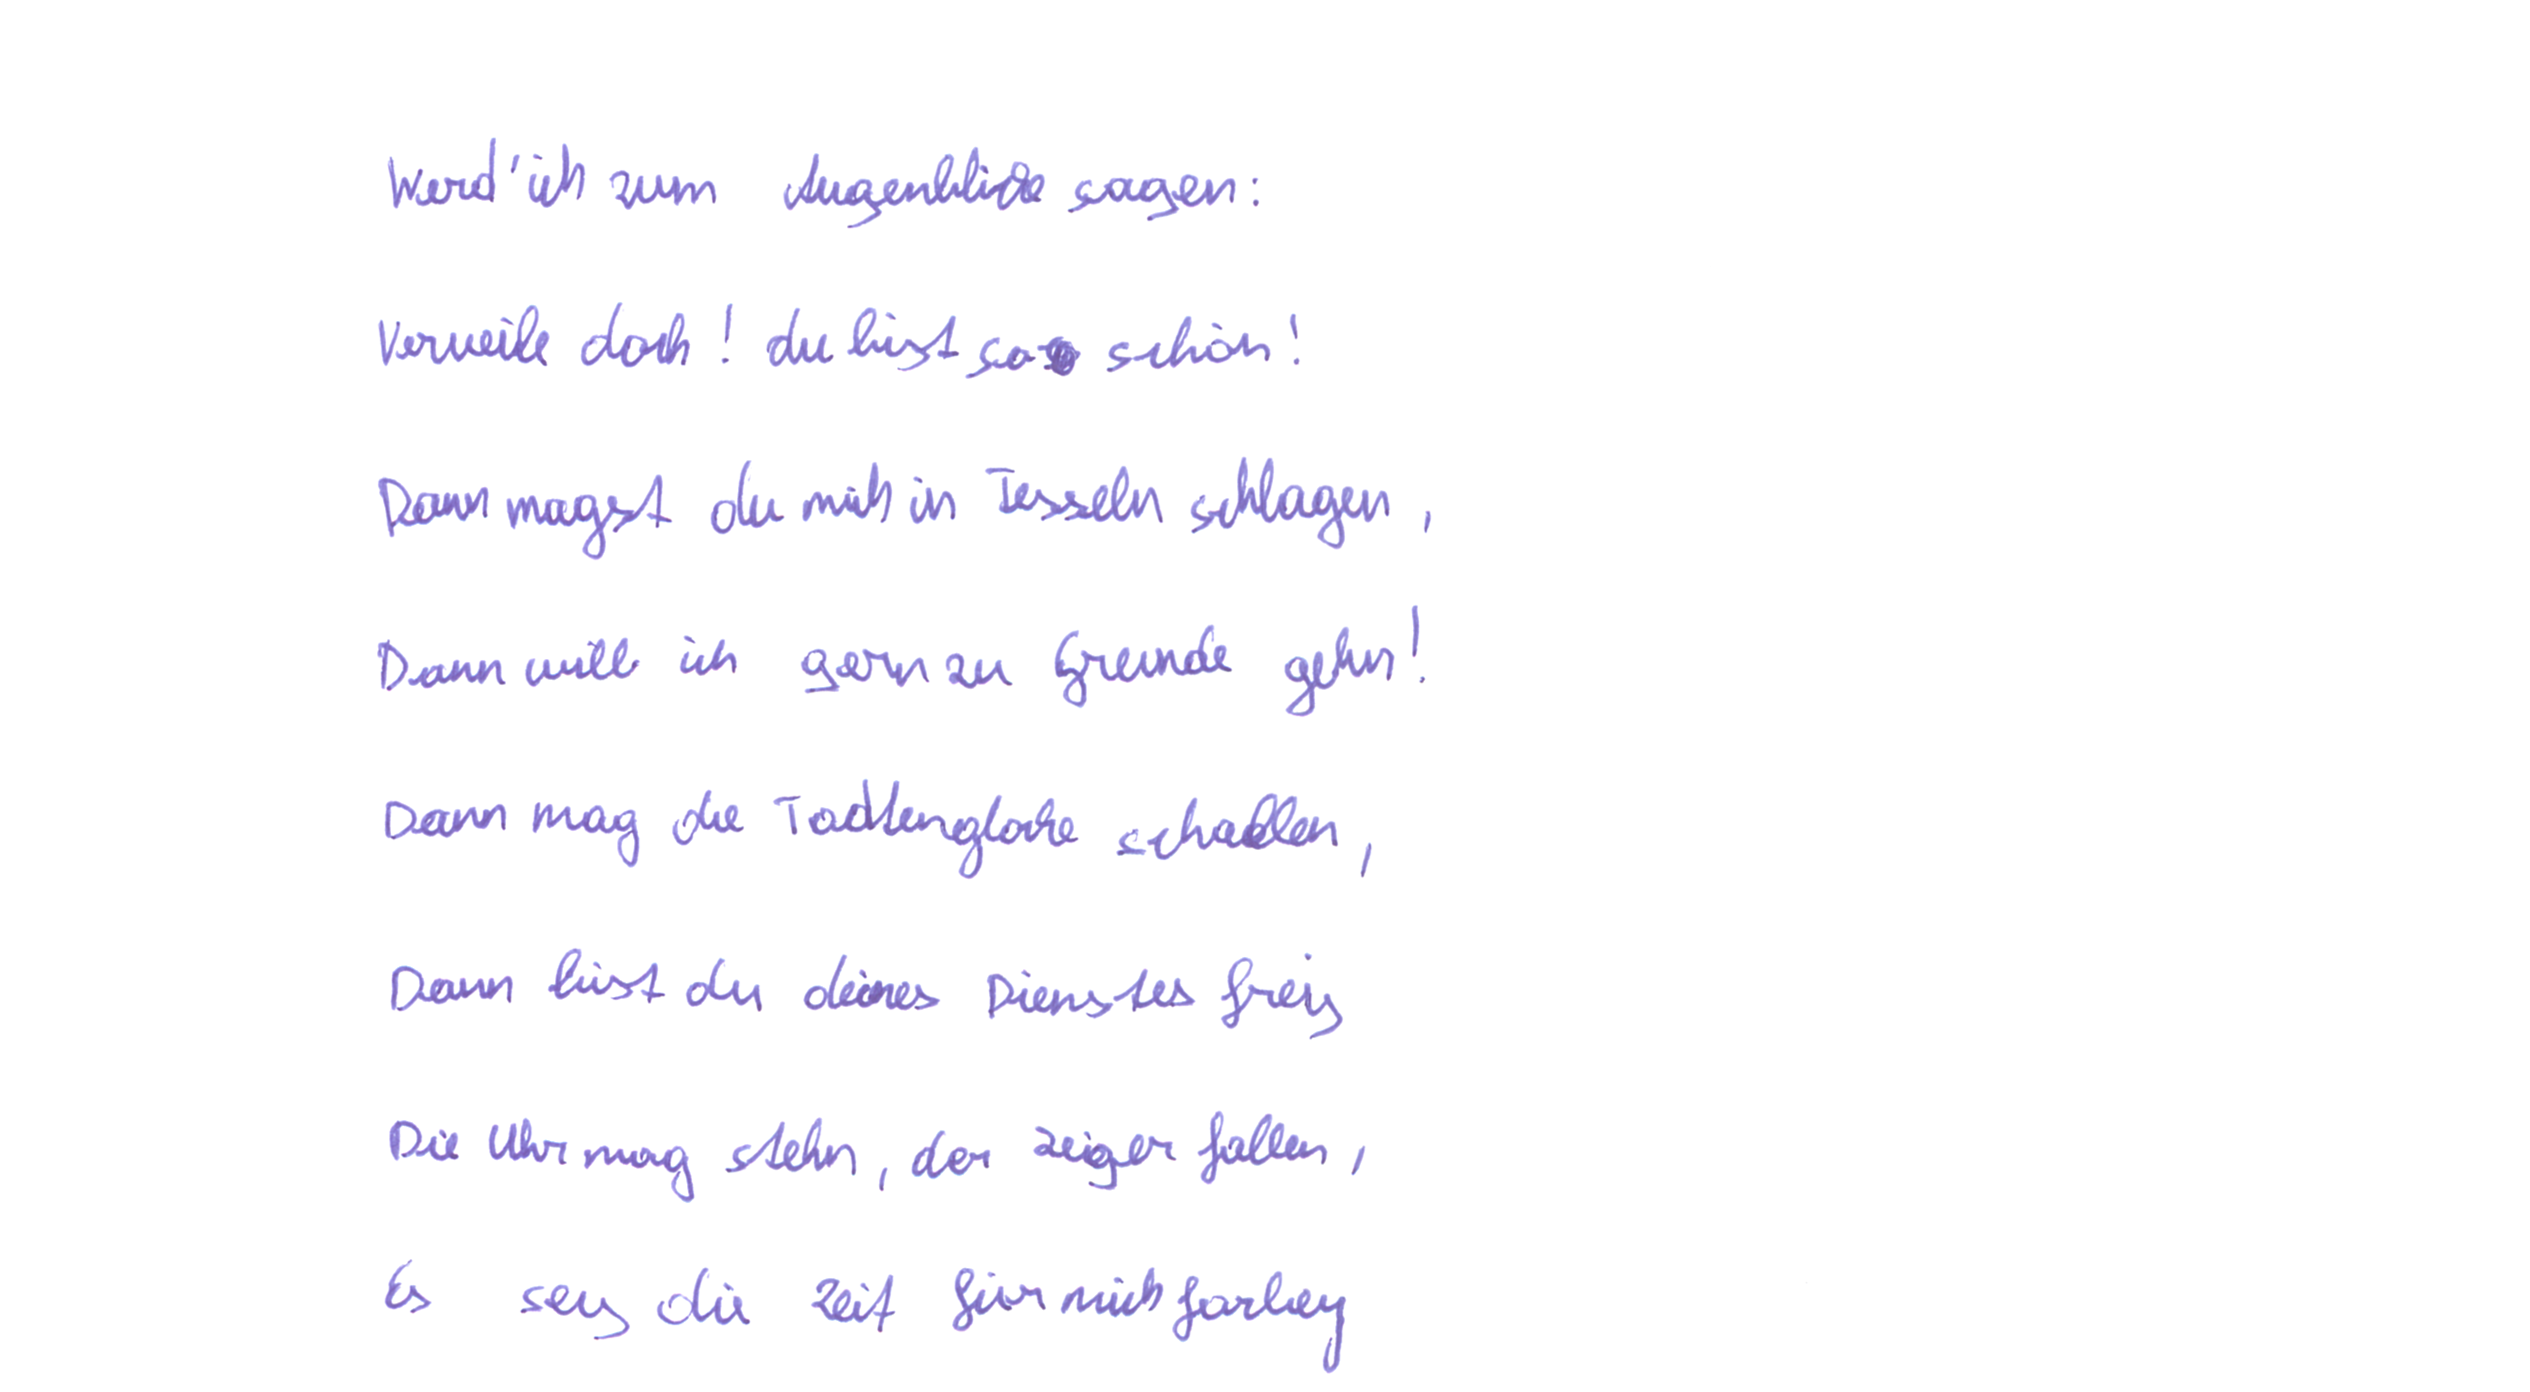 Werd' ich zum Augenblicke sagen:
Verweile doch! du bist so schön!
Dann magst du mich in Fesseln schlagen,
Dann will ich gern zu Grunde gehn!
Dann mag die Todtenglocke schallen,
Dann bist du deines Dienstes frey
Die Uhr mag stehn, der Zeiger fallen,
Es sey die Zeit für mich forbey